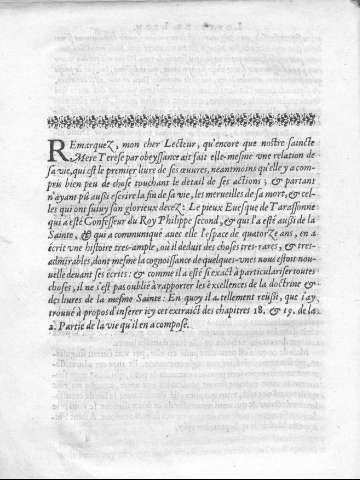 REmarqueZ, mon cher Lecteur, qu'encore que nostre saincte
Mere Terese par obeyssance ait fait elle-mesme vne relation de
sa vie, qui est le premier liure de ses œuures, neantmoins qu'elle y a com-
pris bien peu de chose touchant le detail de ses actions ; & partant
n'ayant pû aussi escrire la fin de sa vie, les merueilles de sa mort, & cel-
les qui ont suiuy son glorieux decez : Le pieux Euesque de Tarassonne
qui a esté Confesseur du Roy Philippe second, & qui l'a esté aussi de la
Sainte, & qui a communiqué auec elle l'espace de quatorze ans, en a
écrit vne histoire tres-ample, où il deduit des choses tres-rares, & tres-
admirables, dont mesme la cognoissance de quelques-vnes nous estoit nou-
uelle deuant ses écrits : & comme il a esté si exact à particulariser toutes
choses, il ne s'est pas oublié à rapporter les excellences de la doctrine &
des liures de la mesme Sainte : En quoy il a tellement reüssi, que i'ay
trouué à propos d'inserer icy cet extraict des chapitres 18. & 19. de la
2. Partie de la vie qu'il en a composé.